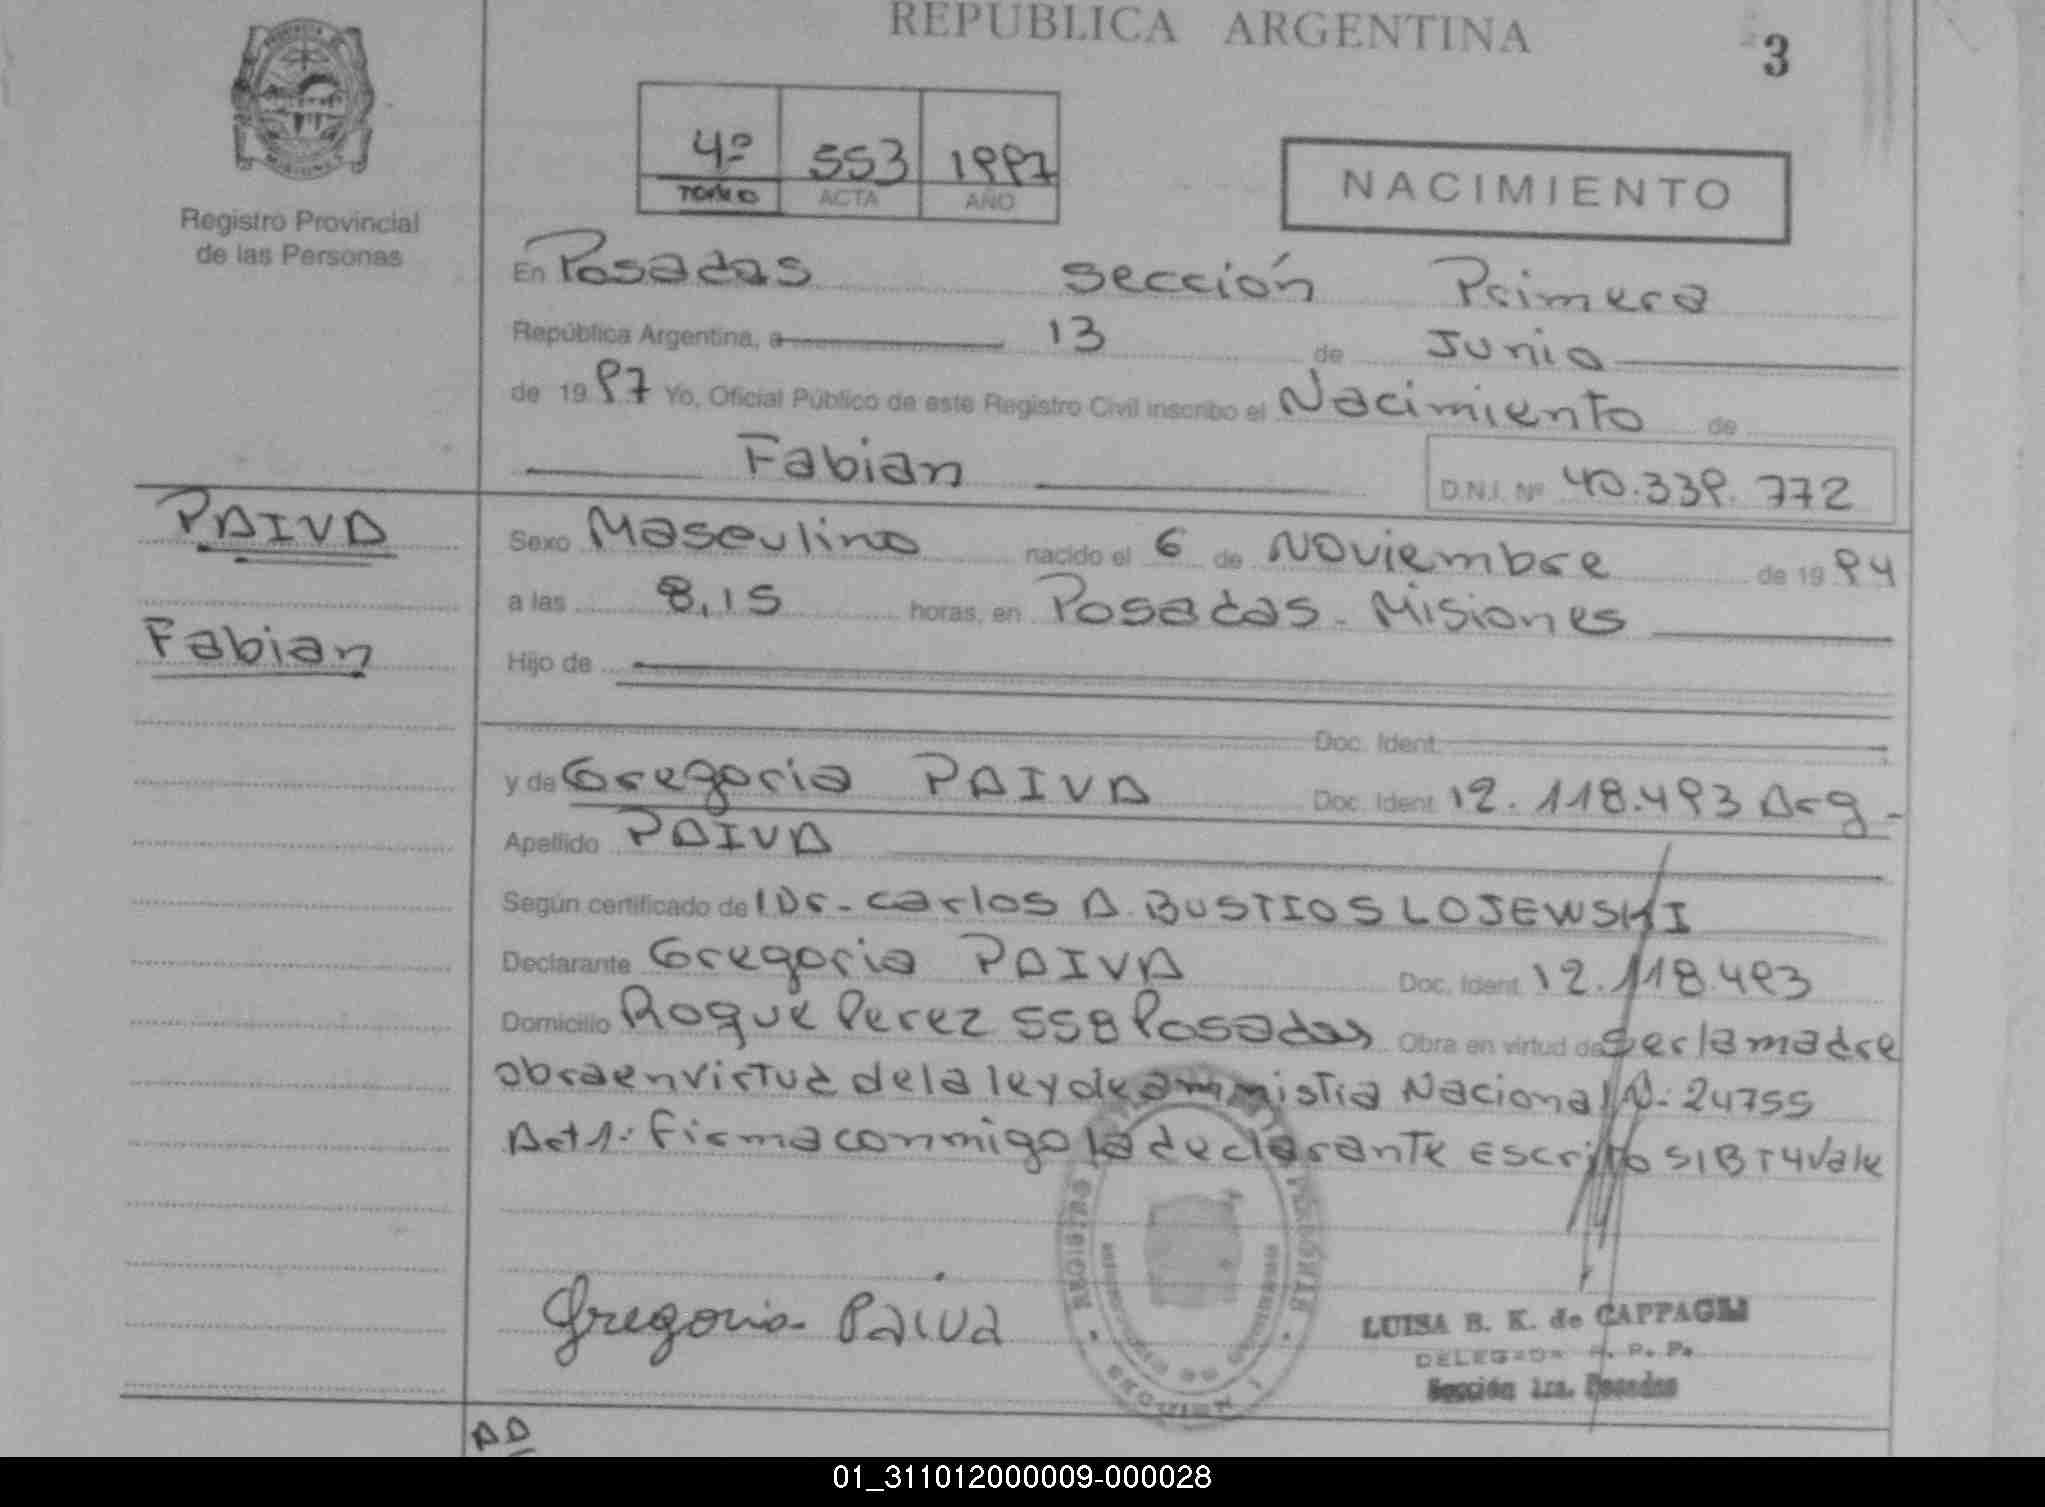 REPUBLICA ARGENTINA
3
Registro Provincial
de las Personas
4º 553 1997
TOMO ACTA AÑO
NACIMIENTO
En Posadas sección Primera
República Argentina, a 13 de Junio
de 1997 Yo, Oficial Público de este Registro Civil inscribo el Nacimiento de
Fabian D.N.I. Nº 40.339.772
PAIVA
Fabian
Sexo Masculino nacido el 6 de Noviembre de 1994
a las 8,15 horas, en Posadas - Misiones
Hijo de
Doc. Ident.
y de Gregoria PAIVA Doc. Ident. 12.118.493 Arg.-
Apellido PAIVA
Según certificado de Dr. Carlos A. BUSTIOS LOJEWSKI
Declarante Gregoria PAIVA Doc. Ident. 12.118.493
Domicilio Roque Perez 558 Posadas Obra en virtud de ser la madre
obra en virtud de la ley de amnistia Nacional N. 24755
Art 1: firma conmigo la declarante Escrito S/B T4 Vale
Gregoria Paiva
LUISA B. K. de CAPPAGLI
DELEGADA R. P. P.
Sección 1ra. Posadas
AD
01_311012000009-000028